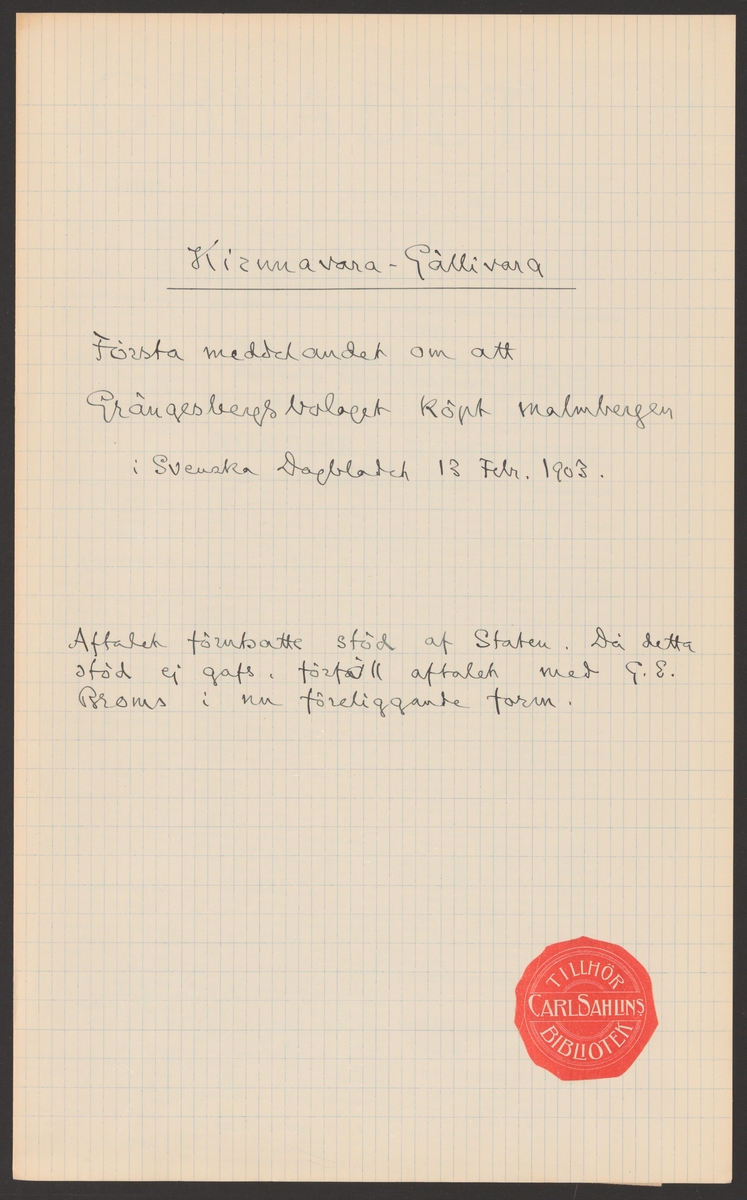 Kirunavara - Gällivara
Första meddelandet om att
Grängesbergsbolaget köpt malmbergen
i Svenska Dagbladet 13 Febr. 1903.
Aftalet förutsatte stöd af Staten. Då detta
stöd ej gafs, förföll aftalet med G. E.
Broms i nu föreliggande form.
TILLHÖR
CARL SAHLINS
BIBLIOTEK